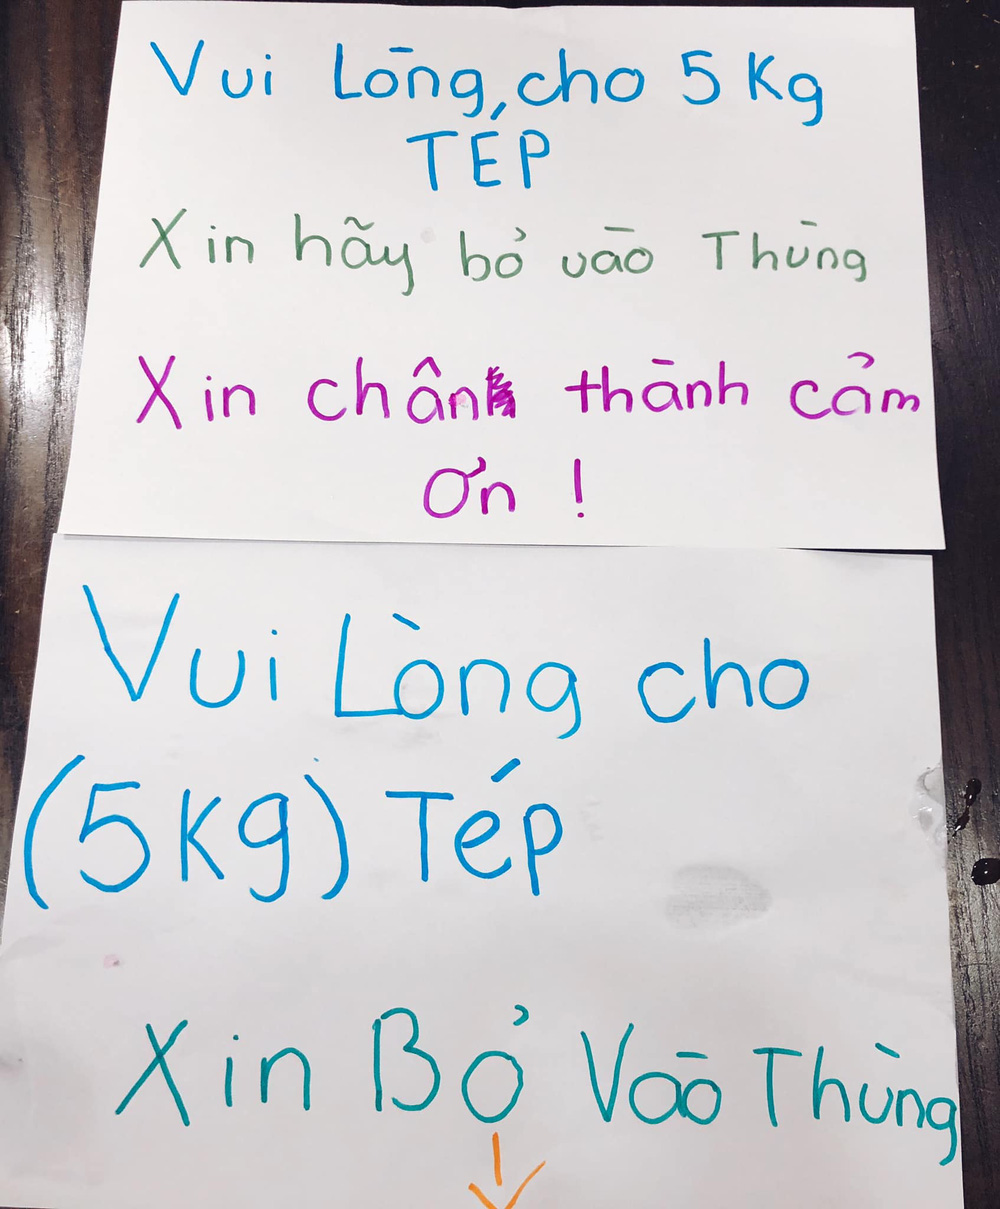 Vui Lòng, cho 5 Kg
TÉP
Xin hãy bỏ vào Thùng
Xin chân thành cảm
ơn !
Vui Lòng cho
(5Kg) Tép
Xin Bỏ Vào Thùng